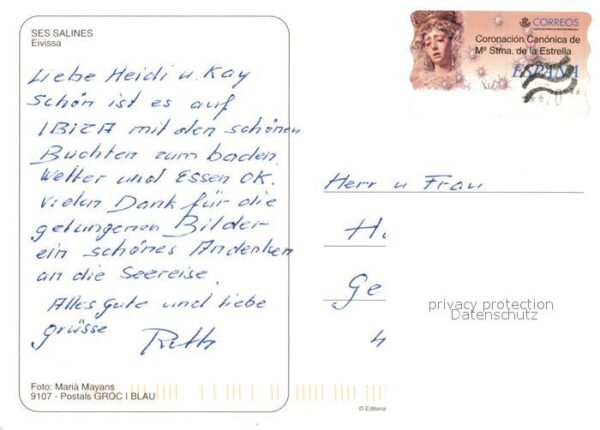 SES SALINES
Eivissa
Liebe Heidi u. Kay
Schön ist es auf
IBIZA mit den schönen
Buchten zum baden.
Wetter und Essen OK.
Vielen Dank für die
gelungenen Bilder-
ein schönes Andenken
an die Seereise.
Alles Gute und liebe
grüsse Ruth
Foto: Marià Mayans
9107 - Postals GROC I BLAU
CORREOS
Coronación Canónica de
Mª Stma. de la Estrella
ESPAÑA
Herr u Frau
H
Ge
4
privacy protection
Datenschutz
© Editoria